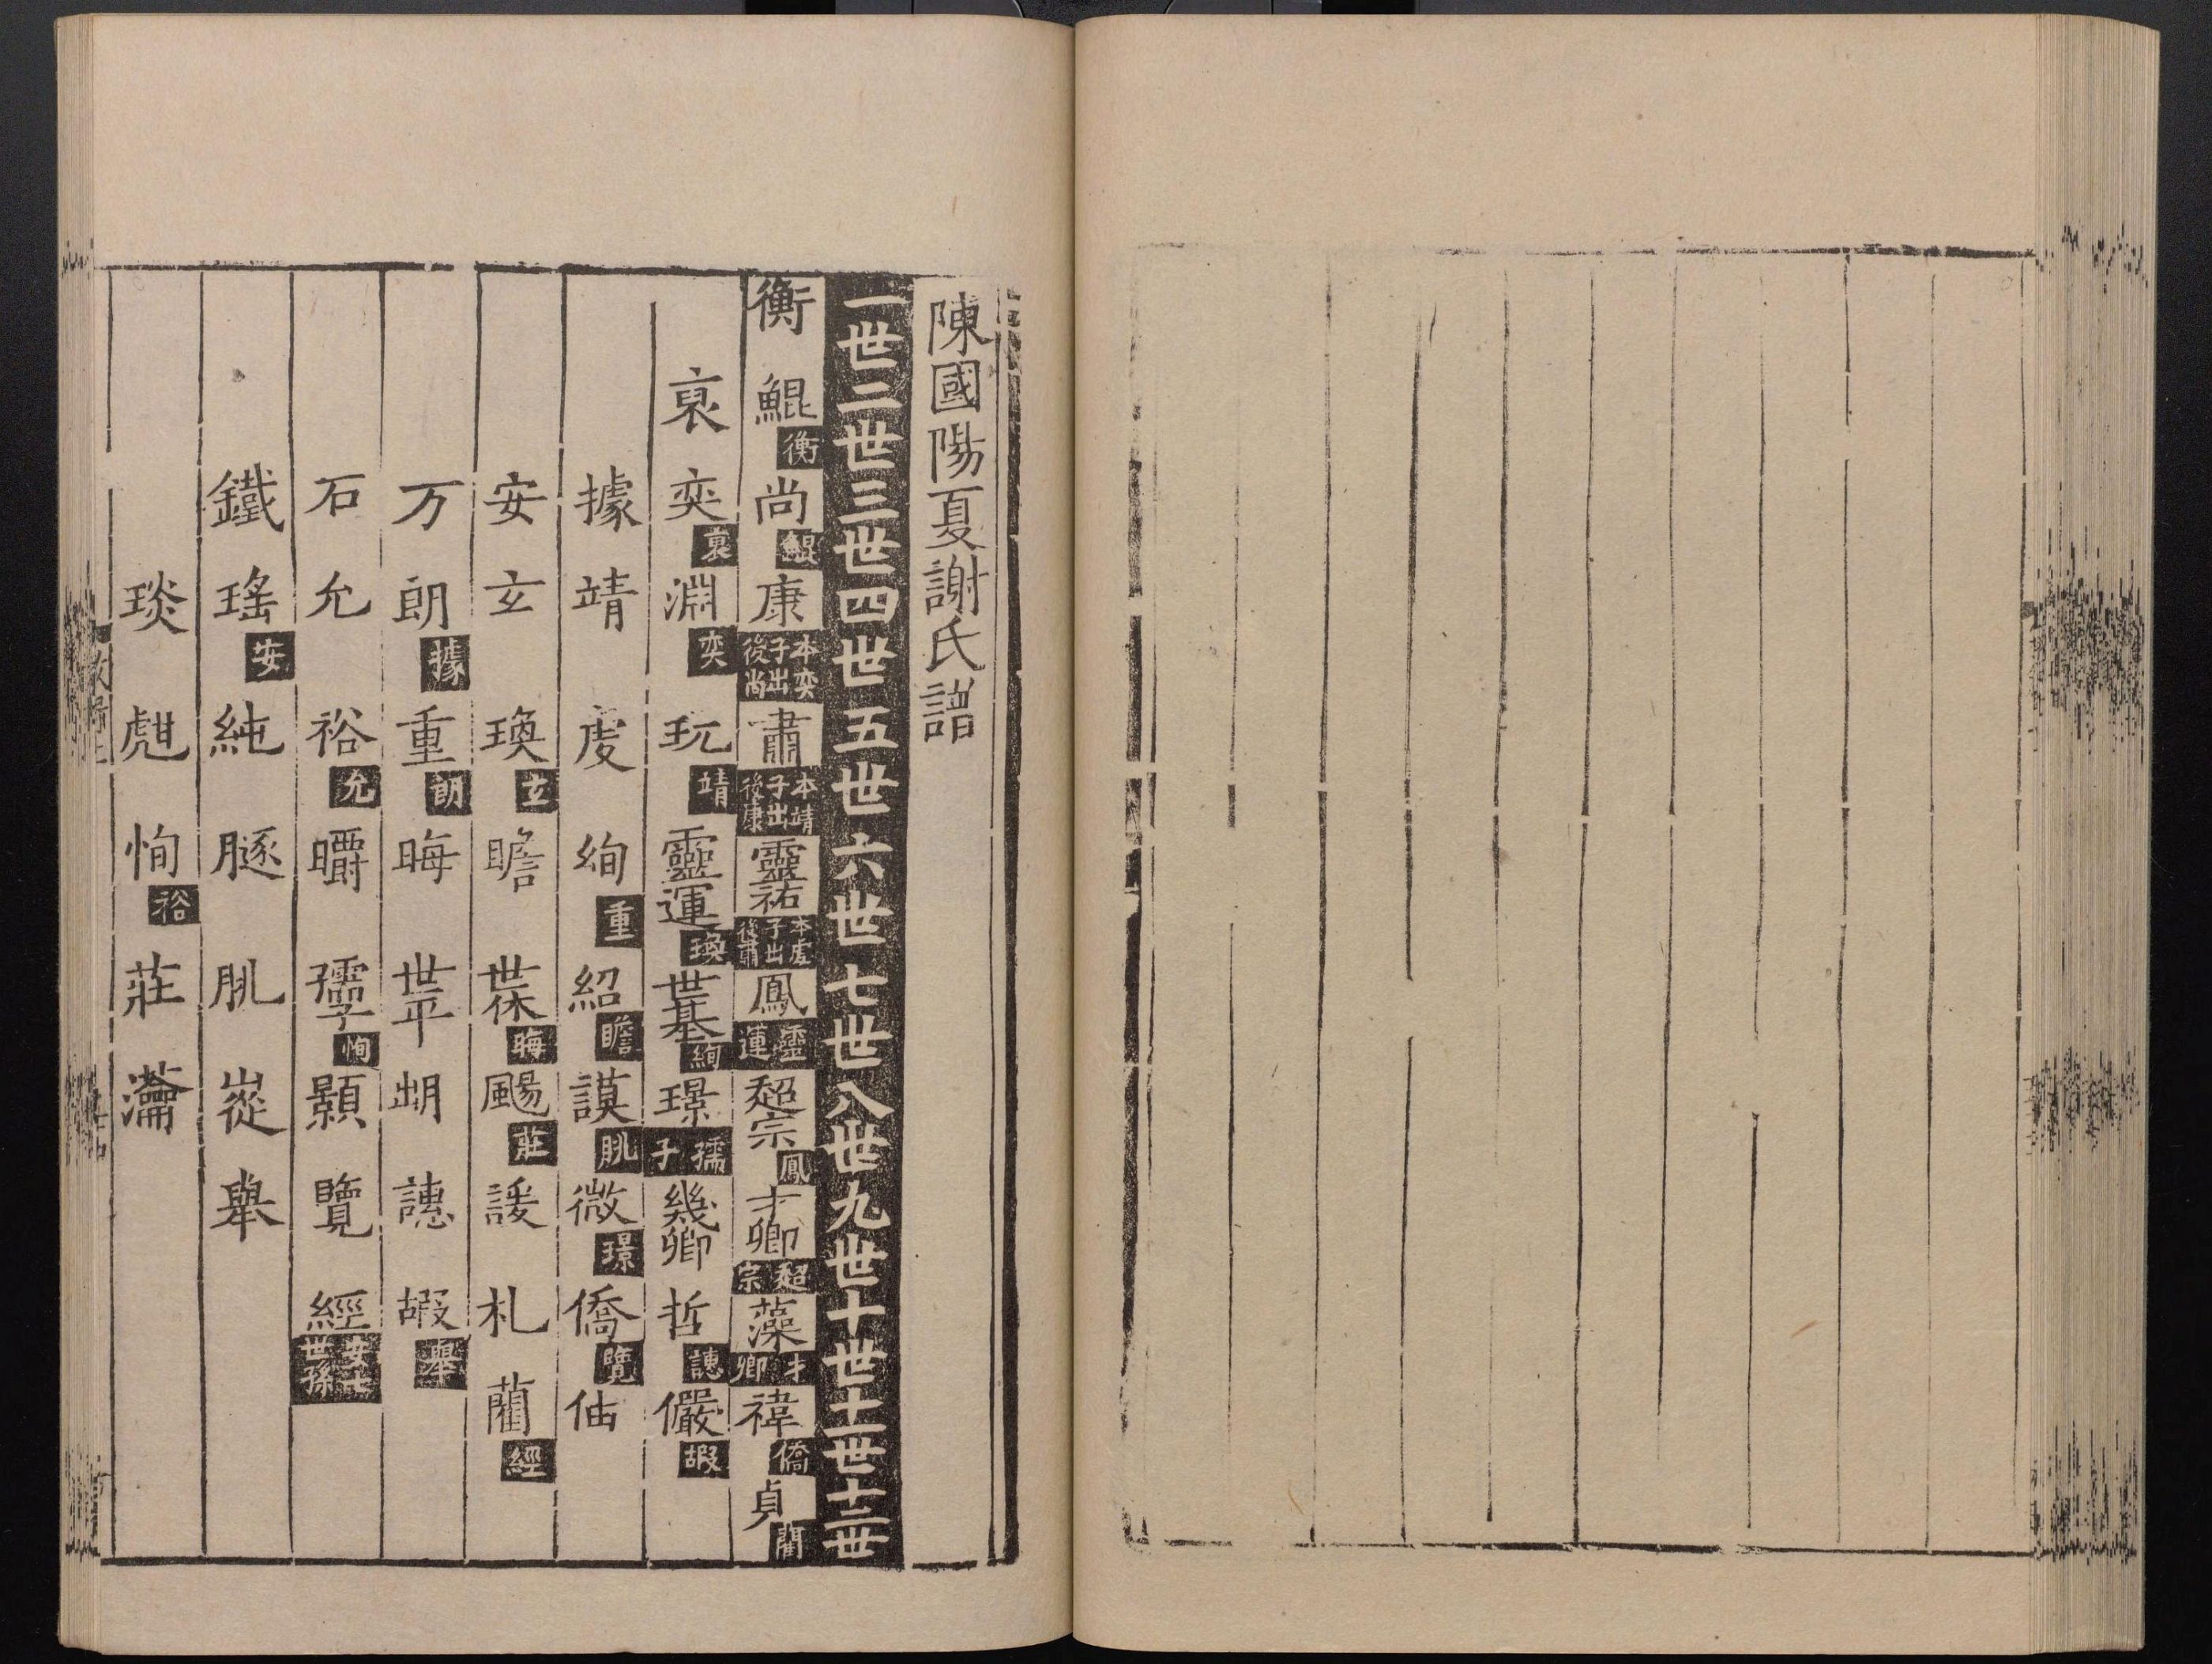 陳國陽夏謝氏譜
一世二世三世四世五世六世七世八世九世十世十一世十二世
衡鯤衡尚鯤康本奕子出後尚肅本靖子出後康靈祐本䖍子出後肅鳳靈運超宗鳳才卿超宗藻才卿禕僑貞藺
裒奕裒淵奕玩靖靈運瑍世基絢璟孺子幾卿哲譓儼嘏
據靖䖍絢重紹瞻謨朓微璟僑覽伷
安玄瑍玄瞻世休晦颺莊諼札藺經
万朗據重朗晦世平朏譓嘏舉
石允裕允㬭孺子恂顥覽經安七世孫
鐵瑤安純朓嵷舉
琰恂裕莊瀹